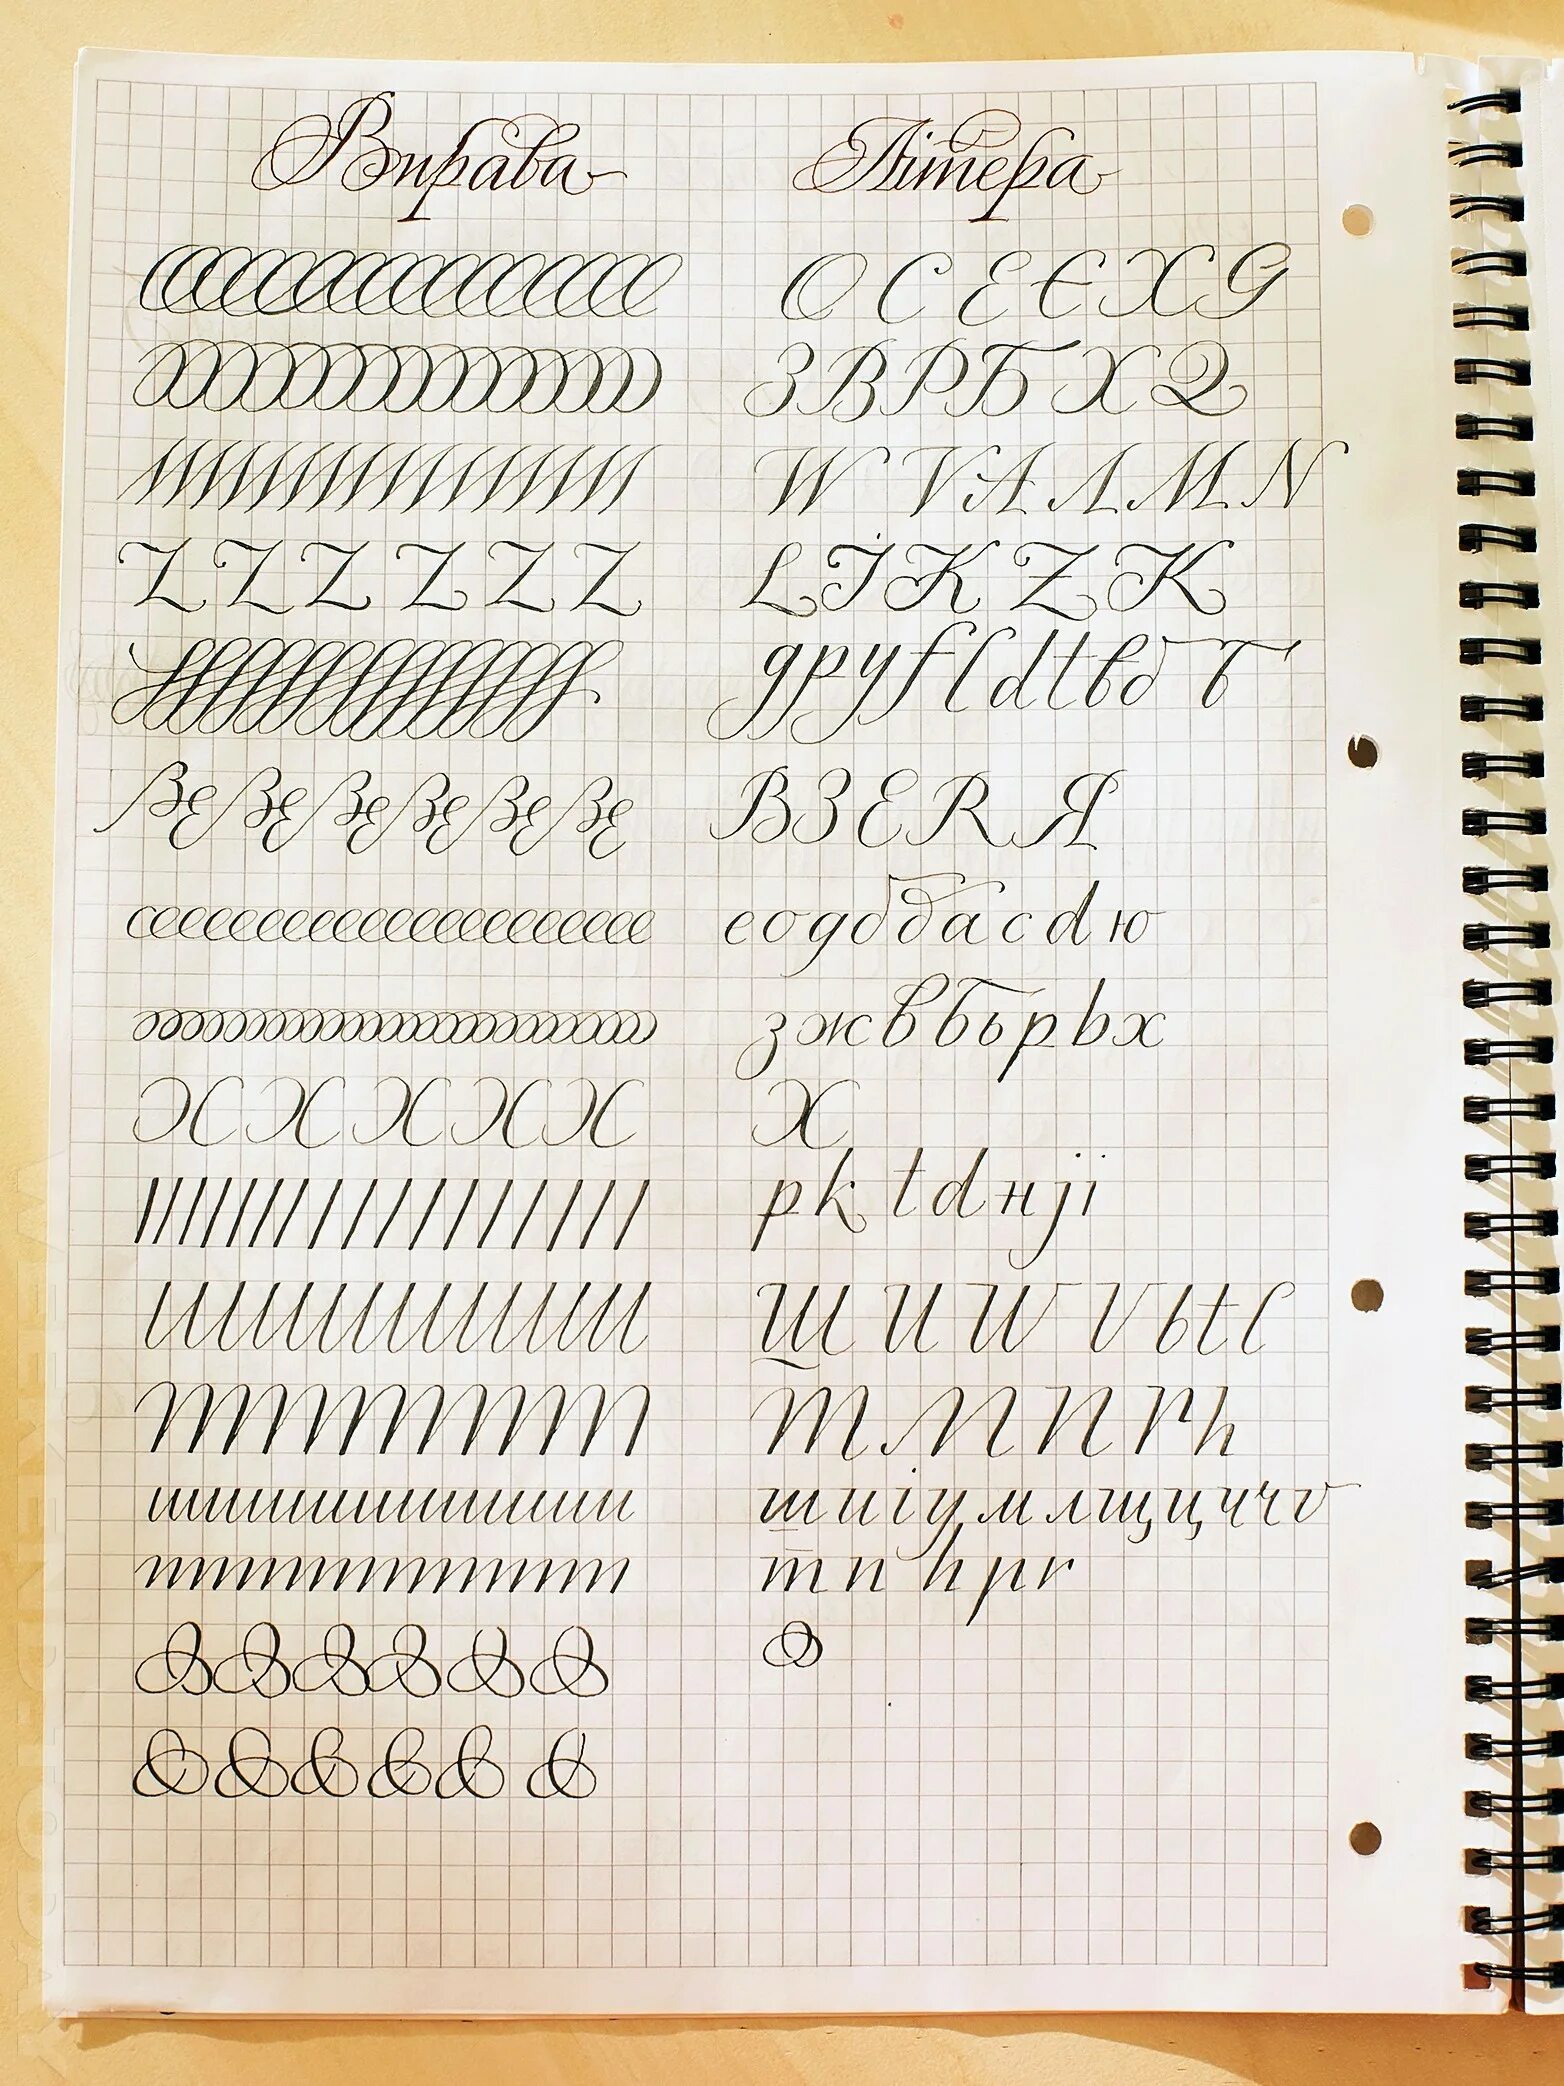 Вправа Літера
O C E Є X G
З В Р Б X Q
W V A Л M N
Z Z Z Z Z Z L І K Z K
g p y f l d t b б
В З E R Я
e o g б д a c d ю
з ж в б ь p b x
X X X X X X
p k t d н j i
Ш U W V b t C
T M N P h
ш и і у м л щ ц ч ч v
т п h p r